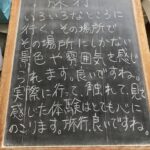 旅行
いろいろなところに
行くとその場所で
その場所にしかない
景色や雰囲気を感じ
られます。良いですね。
実際に行って、触れて、見て
感じた体験はとても心に
のこります。旅行、良いですね。